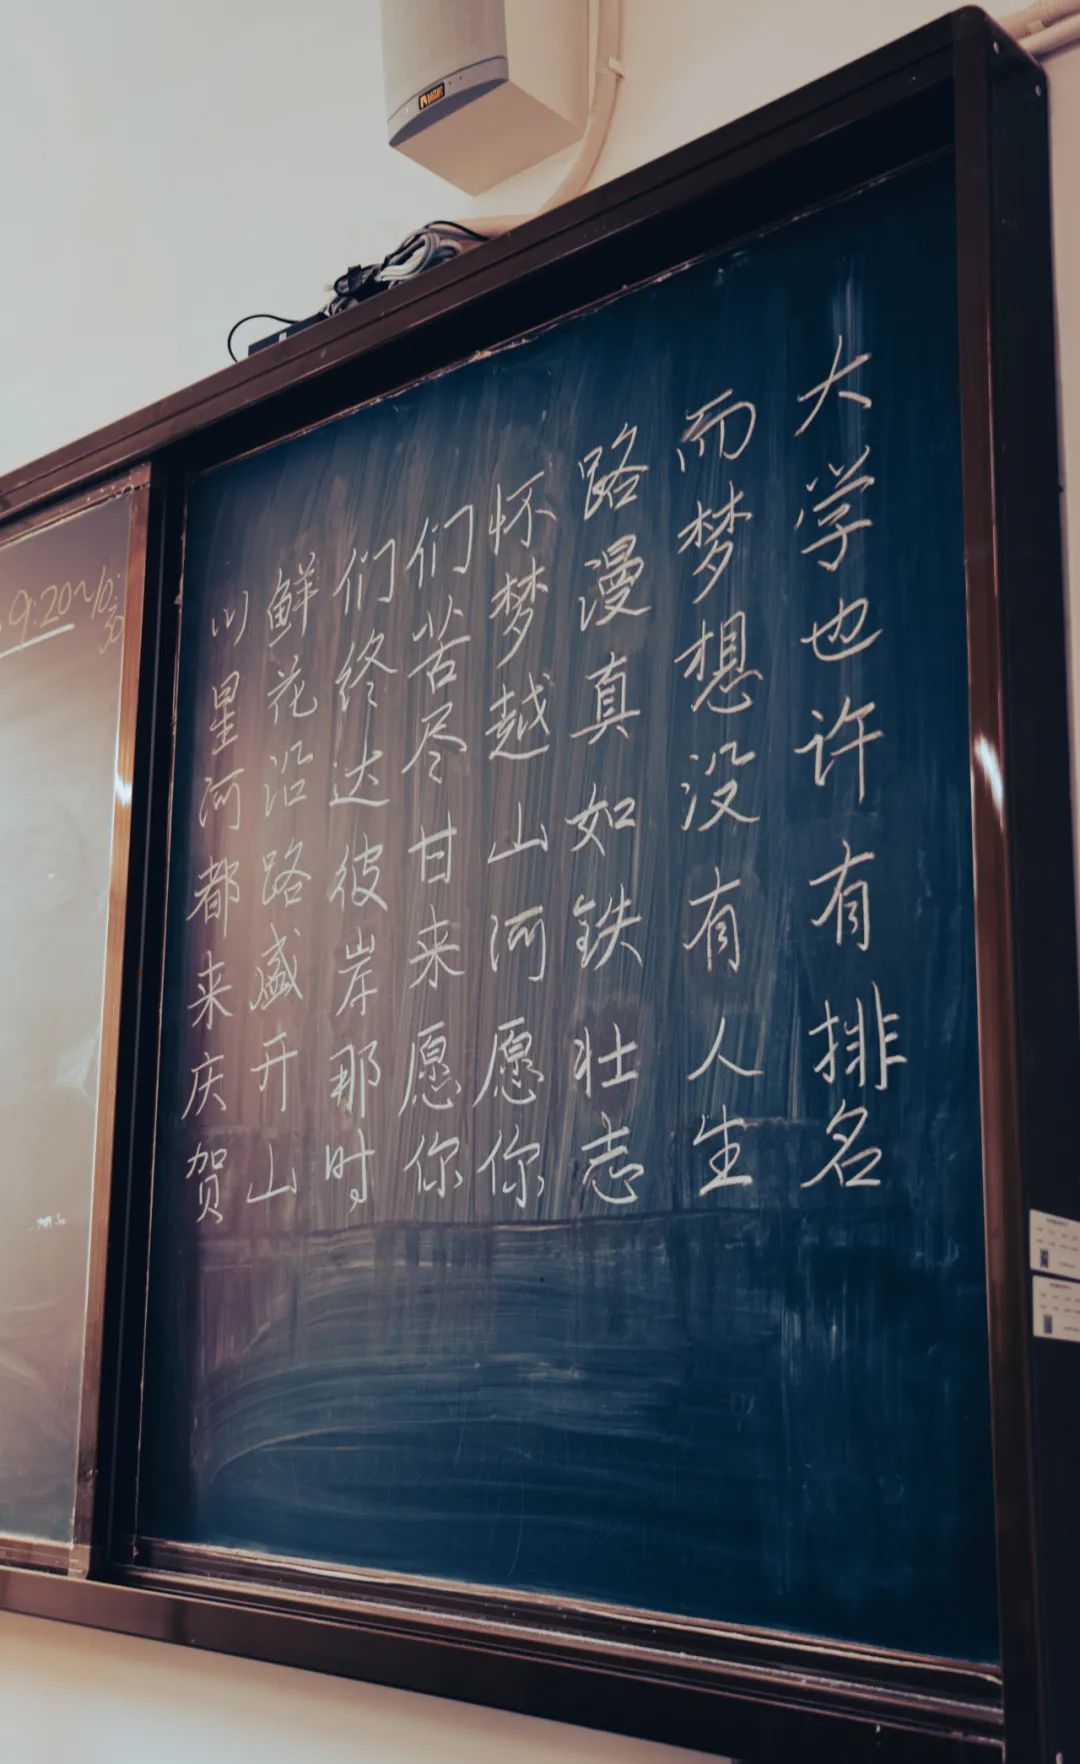 大学也许有排名
而梦想没有人生
路漫真如铁壮志
怀梦越山河愿你
们苦尽甘来愿你
们终达彼岸那时
鲜花沿路盛开山
川星河都来庆贺
9:20~10:30